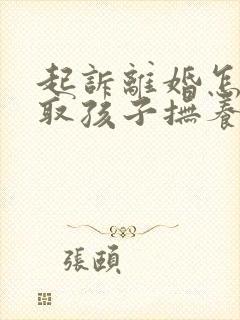 起訴離婚怎
取孩子撫養
張頤